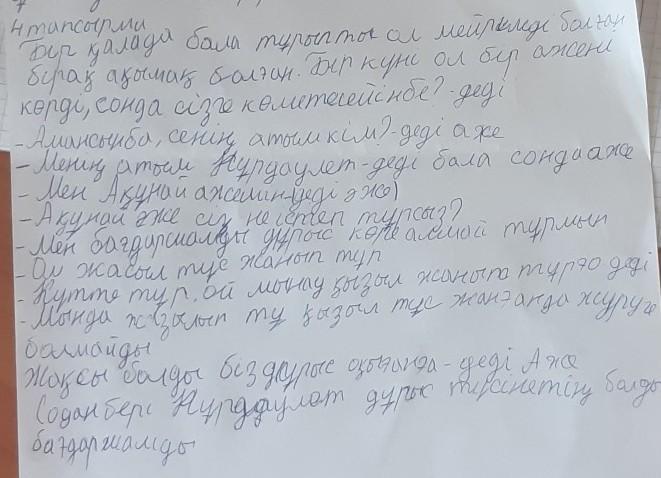 4 тапсырма
Бір қалада бала тұрыпты ол мейрімді болған
бірақ ақымақ болған. Бір күні ол бір әжені
көрді, сонда сізге көметесейінбе? - деді
- Амансыңба, сенің атым кім? - деді аже
- Менің атым Нұрдаулет - деді бала сонда аже
- Мен Ақұнай ажемін - деді әже
- Ақұнай әже сіз не істеп тұрсыз?
- Мен бағдаршамды дұрыс көре алмай тұрмын
- Ол жасыл түс жанып тұр
- Күтте тұр, ой мынау қызыл жанып тұрғо деді
- Мында жазылып ту қызыл түс жанғанда жүруге
болмайды
Жақсы болды біз дұрыс оқығанда - деді Аже
Содан бері Нұрдаулет дұрыс түсінетің болды
бағдаршамды